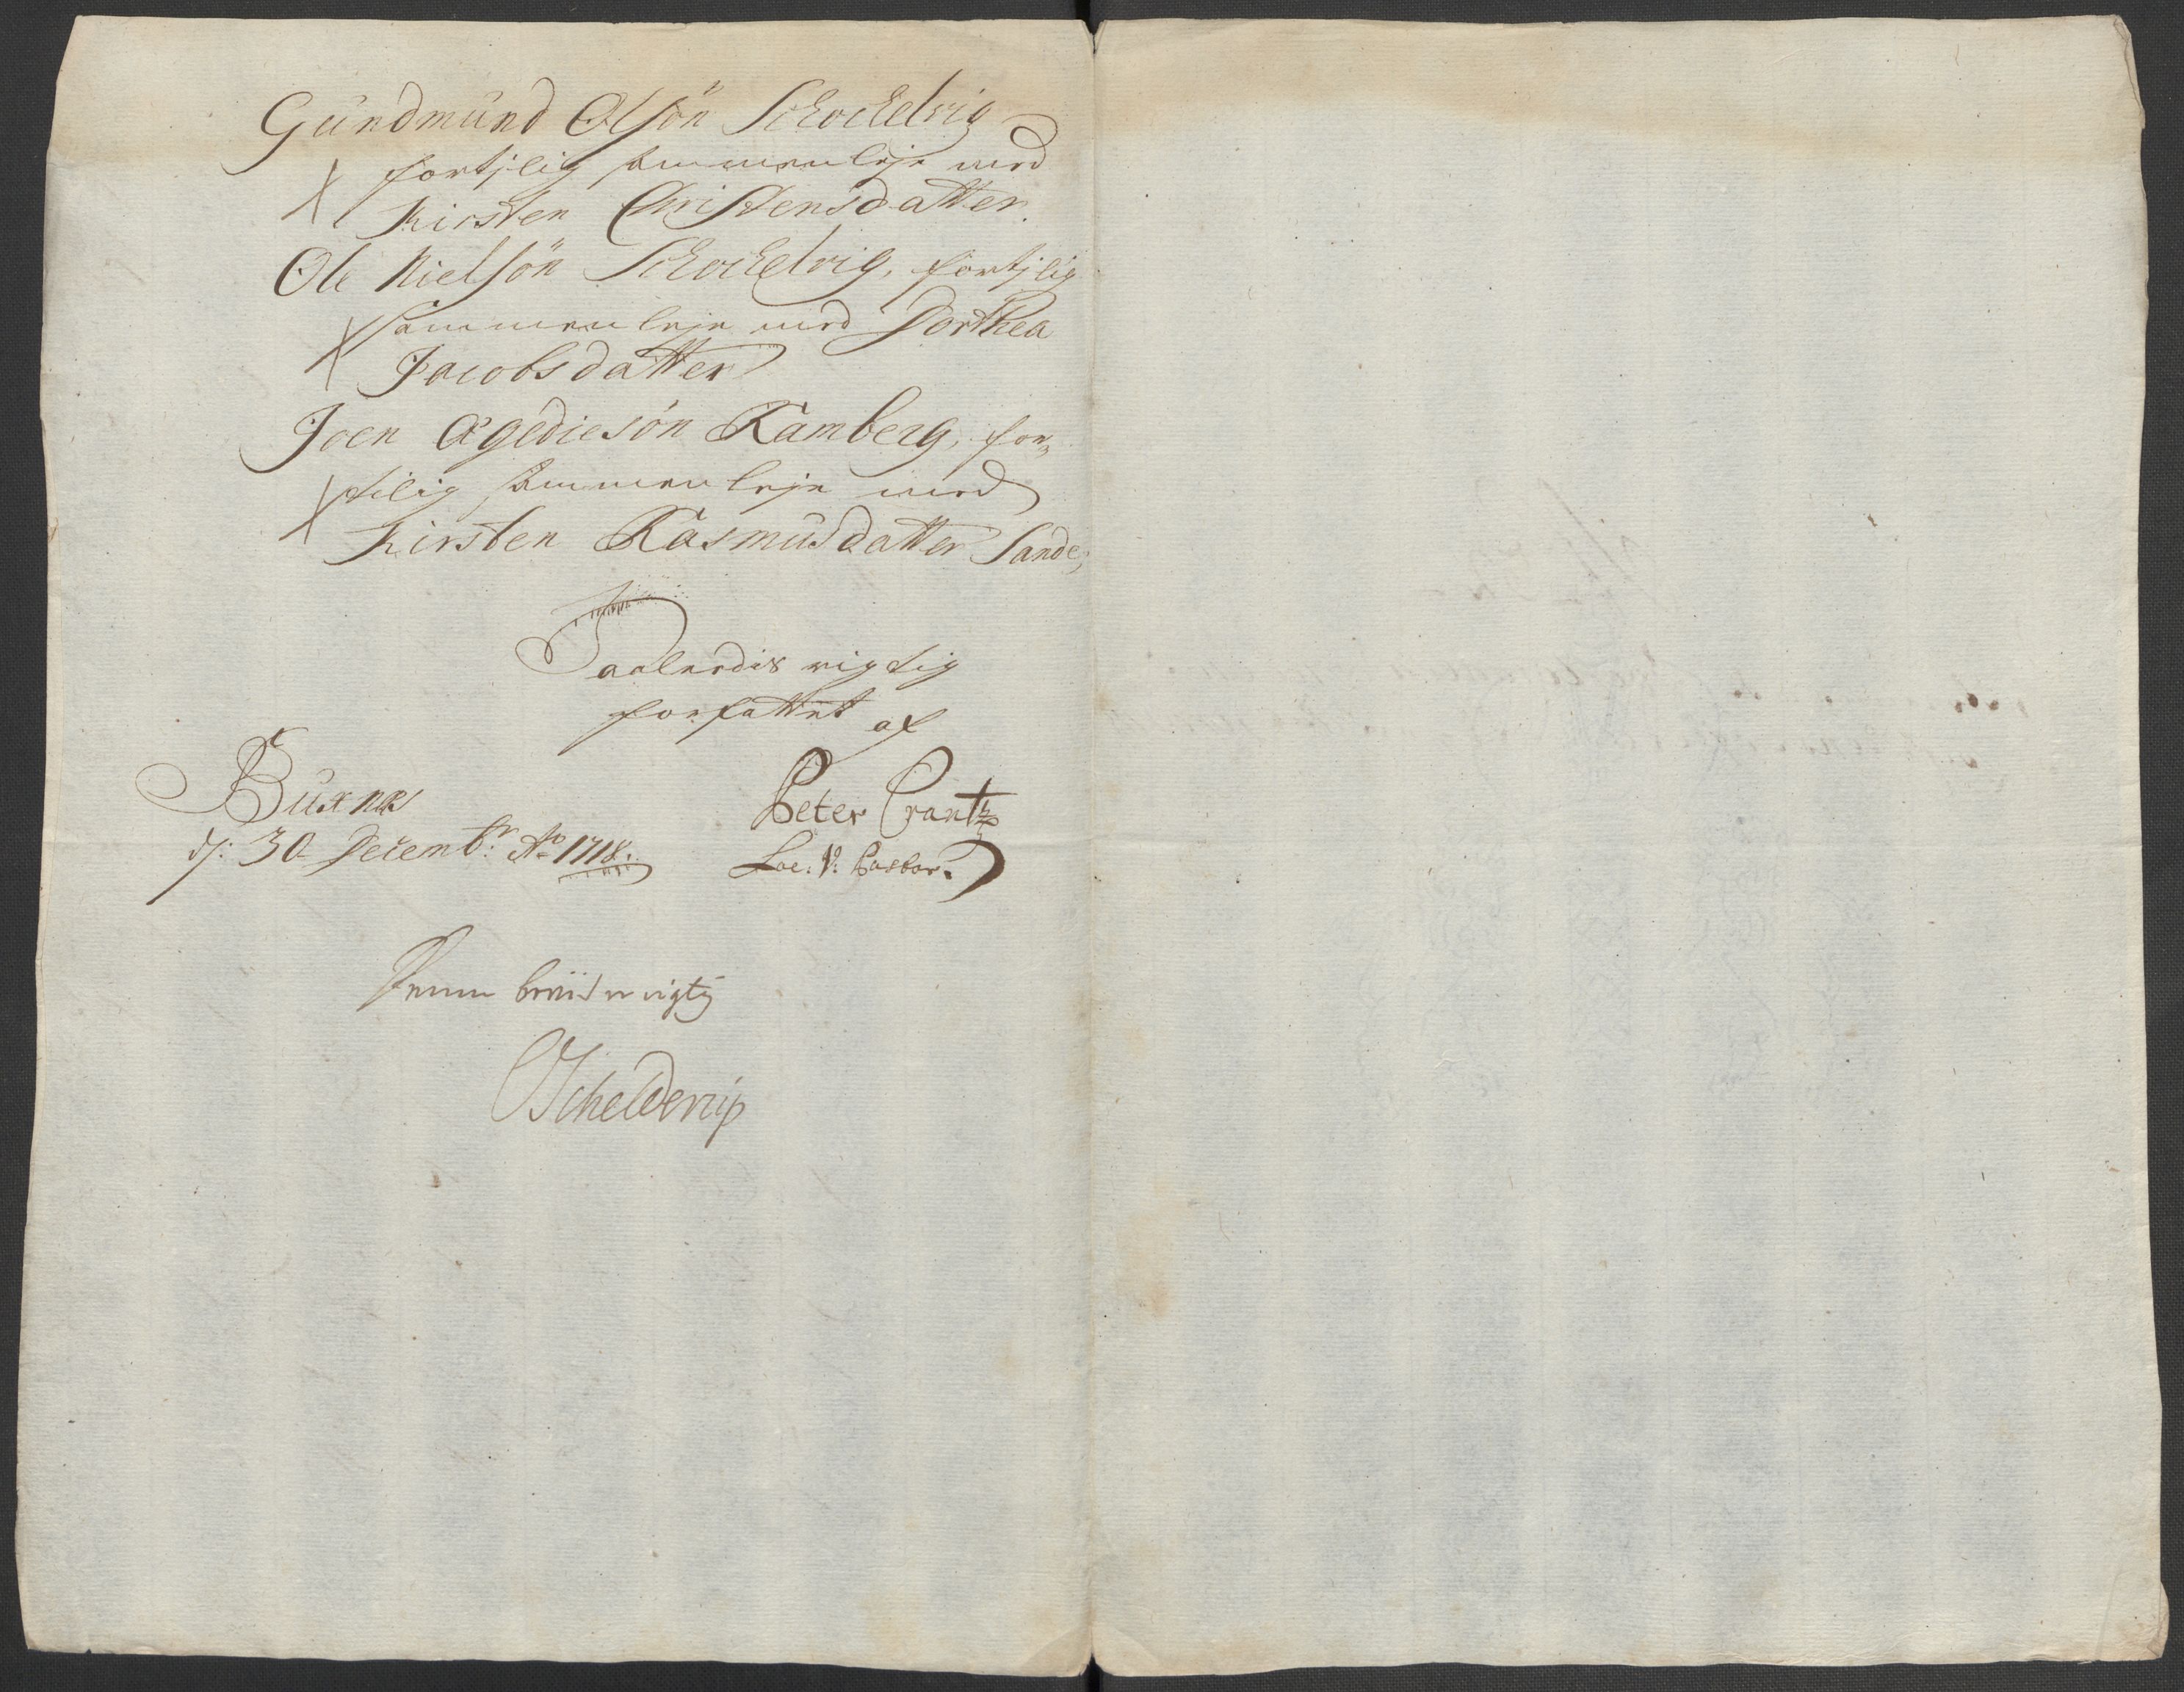 Gundmund Olsön Schochelvig
X fortjlig sammenleje med
Kirsten Christensdatter.
Ole Nielsön Schochelvig, fortjlig
X sammenleje med Dorthea
Jacobsdatter
Joen Ægediesön Ramberg, for„
X tilig sammenleje med
Kirsten Rasmusdatter Sande,
Saaledis rigtig
forfattet af
Buxnæs
dj: 30 Decembr: Ao 1718.
Peter Crantz
Loc. V: Pastor.
Denne beviis er rigtig
Schelderup